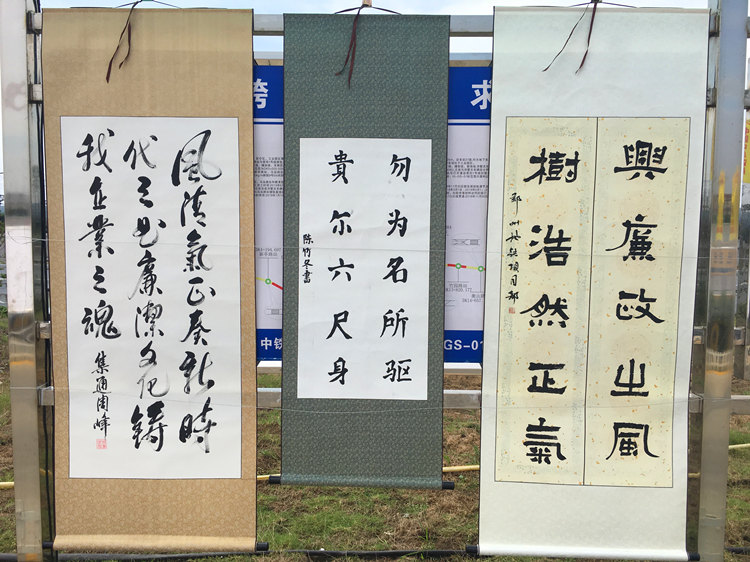 風清氣正奏新時
代之曲廉潔文化鑄
我企業之魂
集通周峰
勿为名所驱
貴尔六尺身
陈竹冬書
興廉政之風
樹浩然正氣
求
中铁
GS-01